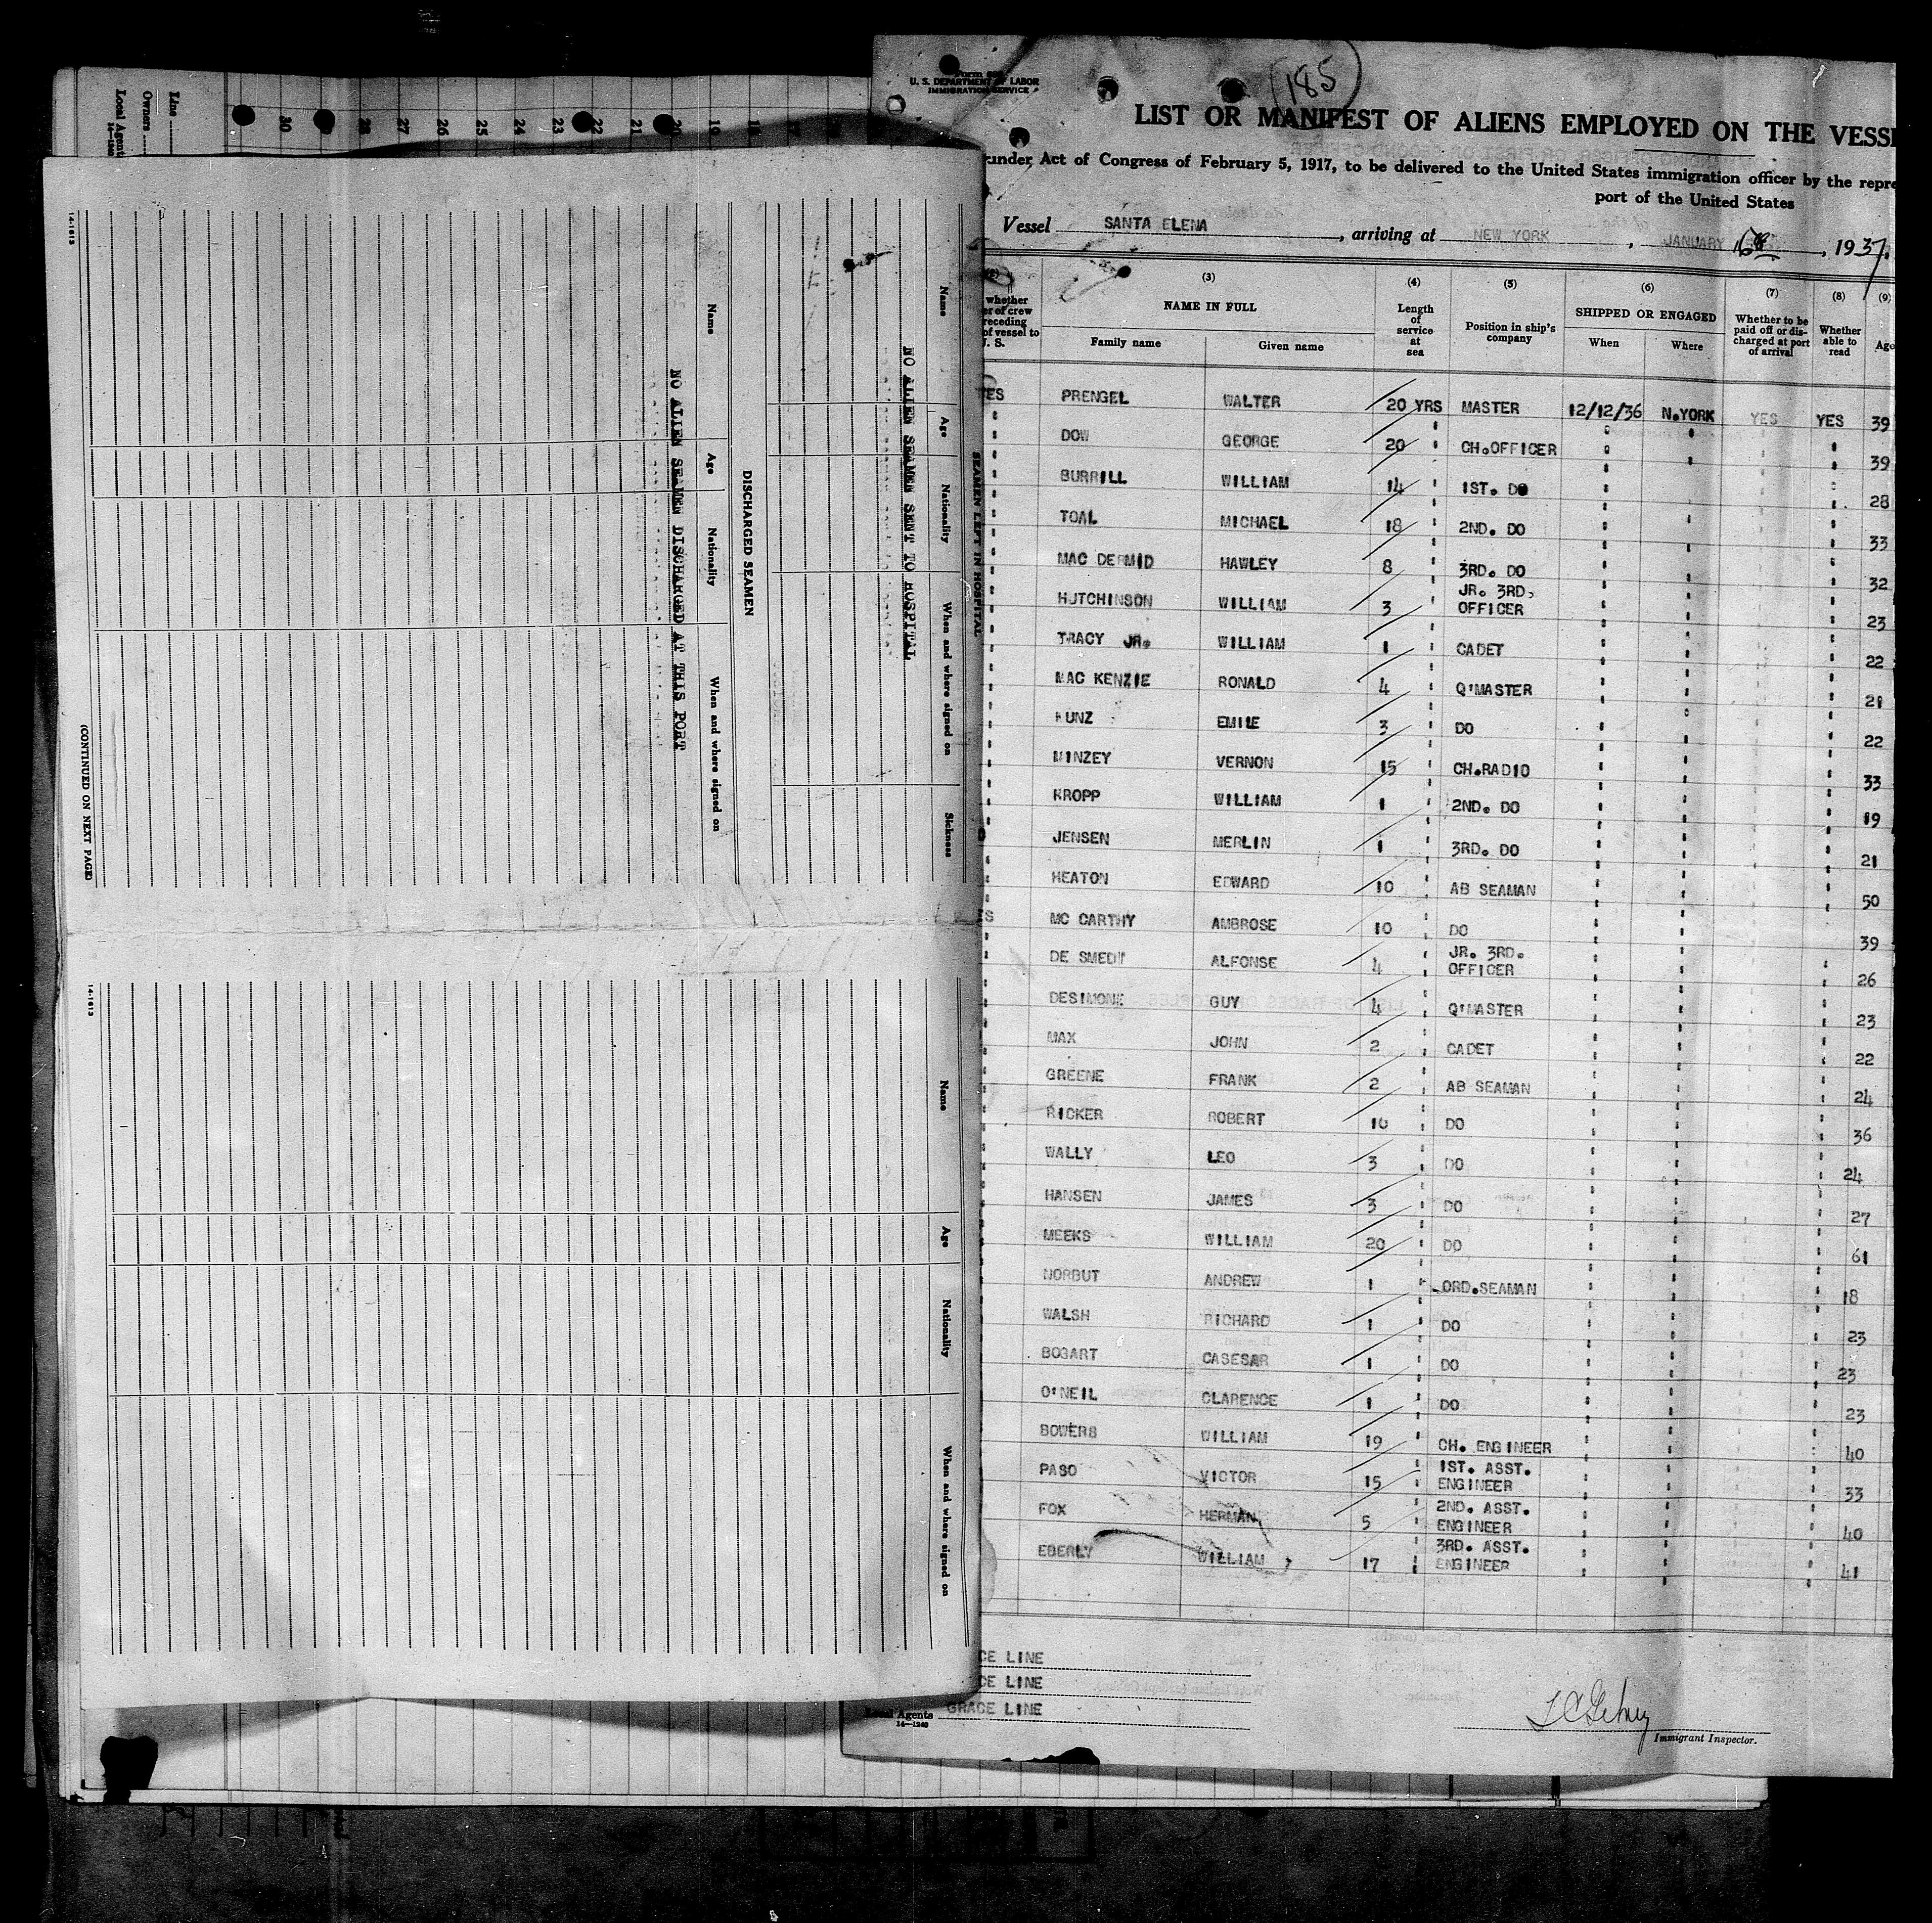 Line
Owners
Local Agents
14-1240
30
28
27
26
25
24
23
22
21
20
19
18
17
14-1613
SEAMEN LEFT IN HOSPITAL
Name Age Nationality When and where signed on Sickness
NO ALIEN SEAMEN SENT TO HOSPITAL
DISCHARGED SEAMEN
Name Age Nationality When and where signed on
NO ALIEN SEAMEN DISCHARGED AT THIS PORT
(CONTINUED ON NEXT PAGE)
14-1613
Name Age Nationality When and where signed on
U. S. DEPARTMENT OF LABOR
IMMIGRATION SERVICE
(185)
LIST OR MANIFEST OF ALIENS EMPLOYED ON THE VESSE
under Act of Congress of February 5, 1917, to be delivered to the United States immigration officer by the repre
port of the United States
Vessel SANTA ELENA, arriving at NEW YORK, JANUARY, 1937.
(3) (4) (5) (6) (7) (8) (9)
whether
er of crew
receding
of vessel to
U. S.
NAME IN FULL
Family name Given name
Length of service at sea
Position in ship's company
SHIPPED OR ENGAGED
When Where
Whether to be paid off or discharged at port of arrival
Whether able to read
Age
YES PRENGEL WALTER 20 YRS MASTER 12/12/36 N.YORK YES YES 39
" DOW GEORGE 20 " CH.OFFICER " " " 39
" BURRILL WILLIAM 14 " 1ST. DO " " " 28
" TOAL MICHAEL 18 " 2ND. DO " " " 33
" MAC DERMID HAWLEY 8 " 3RD. DO " " " 32
" HUTCHINSON WILLIAM 3 " JR. 3RD. OFFICER " " " 23
" TRACY JR. WILLIAM 1 " CADET " " " 22
" MAC KENZIE RONALD 4 " Q'MASTER " " " 21
" KUNZ EMILE 3 " DO " " " 22
" MINZEY VERNON 15 " CH.RADIO " " " 33
" KROPP WILLIAM 1 " 2ND. DO " " " 19
" JENSEN MERLIN 1 " 3RD. DO " " " 21
" HEATON EDWARD 10 " AB SEAMAN " " " 50
MC CARTHY AMBROSE 10 " DO " " " 39
" DE SMEDT ALFONSE 4 " JR. 3RD. OFFICER " " " 26
" DESIMONE GUY 4 " Q'MASTER " " " 23
" MAX JOHN 2 " CADET " " " 22
" GREENE FRANK 2 " AB SEAMAN " " " 24
" RICKER ROBERT 10 " DO " " " 36
" WALLY LEO 3 " DO " " " 24
" HANSEN JAMES 3 " DO " " " 27
" MEEKS WILLIAM 20 " DO " " " 61
" NORBUT ANDREW 1 " ORD.SEAMAN " " " 18
" WALSH RICHARD 1 " DO " " " 23
" BOGART CASESAR 1 " DO " " " 23
" O'NEIL CLARENCE 1 " DO " " " 23
BOWERS WILLIAM 19 " CH. ENGINEER " " " 40
PASO VICTOR 15 " 1ST. ASST. ENGINEER " " " 33
FOX HERMAN 5 " 2ND. ASST. ENGINEER " " " 40
EBERLY WILLIAM 17 " 3RD. ASST. ENGINEER " " " 41
CE LINE
CE LINE
Local Agents GRACE LINE
14-1240
Immigrant Inspector.